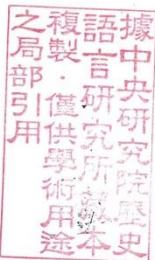 據中央研究院歷史
語言研究所藏本
複製．僅供學術用途
之局部引用